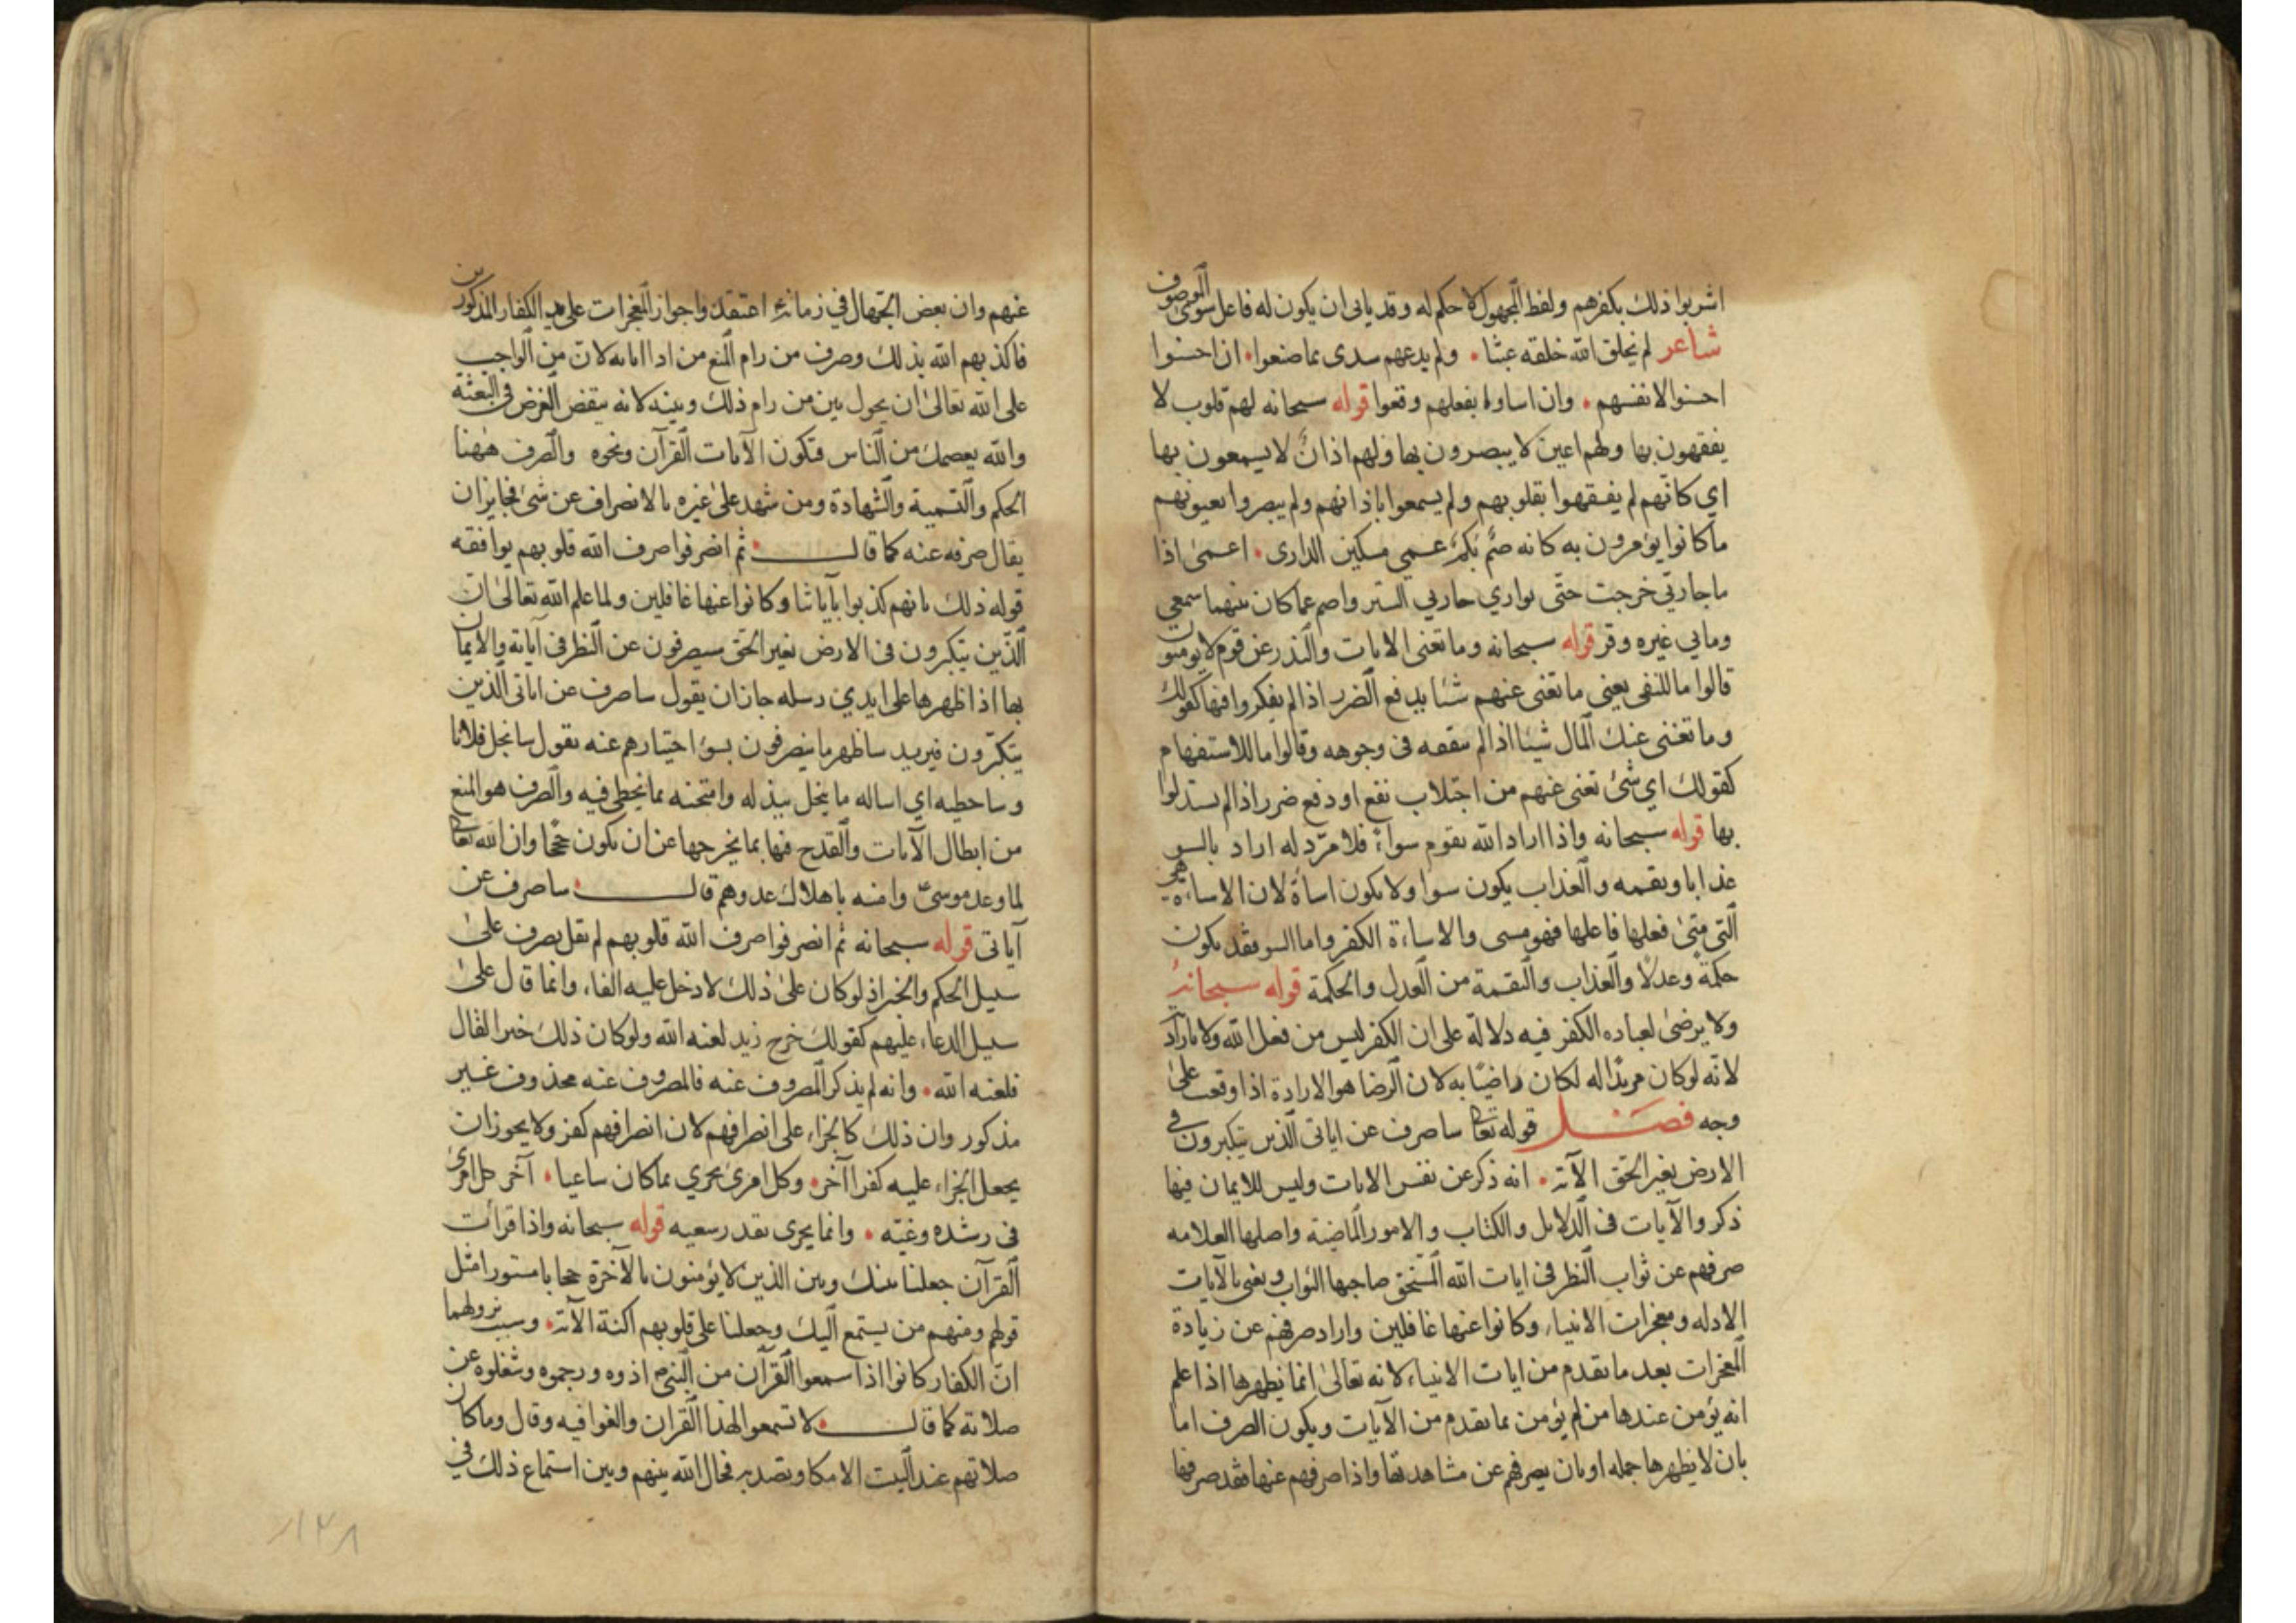 اشربوا ذلك بكفرهم ولفظ المجهول لا حكم له وقد يابى ان يكون له فاعل سوى الموصوف
شاعر لم يخلق الله خلقه عبثا ولم يدعهم سدى بما صنعوا ان احسنوا
احسنوا لانفسهم وان اساوا بفعلهم وقعوا قوله سبحانه لهم قلوب لا
يفقهون بها ولهم اعين لا يبصرون بها ولهم اذان لا يسمعون بها
اي كانهم لم يفقهوا بقلوبهم ولم يسمعوا باذانهم ولم يبصروا بعيونهم
ما كانوا يؤمرون به كانه صم بكم عمي مسكين الدارى اعمى اذا
ما جارتي خرجت حتى يواري جارتي الستر واصم عما كان بينهما سمعي
وما بي غيره وقر قوله سبحانه وما تغنى الايات والنذر عن قوم لا يومنون
قالوا ما للنفى يعني ما تغنى عنهم شئا بدفع الضرر اذا لم يفكروا فيها كقولك
وما تغنى عنك المال شيئا اذا لم تنفقه فى وجوهه وقالوا ما للاستفهام
كقولك اي شئ تغنى عنهم من اجتلاب نفع او دفع ضرر اذا لم يستدلوا
بها قوله سبحانه واذا اراد الله بقوم سواء فلا مرد له اراد بالسو
عذابا ونقمه والعذاب يكون سوا ولا يكون اساة لان الاساءة هى
التى متى فعلها فاعلها فهو مسى والاساءة الكفر واما السو فقد يكون
حكمة وعدلا والعذاب والنقمة من العدل والحكمة قوله سبحانه
ولا يرضى لعباده الكفر فيه دلالة على ان الكفر ليس من فعل الله ولا بارادته
لانه لو كان مريدا له لكان راضيا به لان الرضا هو الارادة اذا وقعت على
وجه فصل قوله تعا ساصرف عن اياتى الذين يتكبرون فى
الارض بغير الحق الآية انه ذكر عن نفس الايات وليس للايمان فيها
ذكر والآيات فى الدلايل والكتاب والامور الماضية واصلها العلامه
صرفهم عن ثواب النظر فى ايات الله المستحق صاحبها الثواب ويعنى بالآيات
الادله ومعجزات الانبياء وكانوا عنها غافلين واراد صرفهم عن زيادة
المعجزات بعد ما تقدم من ايات الانبياء لانه تعالى انما يظهرها اذا علم
انه يؤمن عندها من لم يؤمن بما تقدم من الآيات ويكون الصرف اما
بان لا يظهرها جمله او بان يصرفهم عن مشاهدتها واذا صرفهم عنها فقد صرفها
عنهم وان بعض الجهال في زمانه اعتقدوا جواز المعجزات على الكفار المذكورين
فاكذبهم الله بذلك وصرف من رام المنع من ادا اياته لان من الواجب
على الله تعالى ان يحول بين من رام ذلك وبينه لانه ينقض الغرض فى البعثة
والله يعصمك من الناس فتكون الآيات القرآن ونحوه والصرف ههنا
الحكم والتسمية والشهادة ومن شهد على غيره بالانصراف عن شئ فجايز ان
يقال صرفه عنه كما قال ثم انصرفوا صرف الله قلوبهم يوافقه
قوله ذلك بانهم كذبوا بآياتنا وكانوا عنها غافلين ولما علم الله تعالى ان
الذين يتكبرون فى الارض بغير الحق سيصرفون عن النظر فى آياته والايمان
بها اذا ظهرها على ايدي رسله جاز ان يقول ساصرف عن اياتى الذين
يتكبرون فيريد ساظهر ما ينصرفون بسؤ اختيارهم عنه تقول سابخل فلانا
وساخطيه اي اساله ما يبخل ببذله وامتحنه بما يخطى فيه والصرف هو المنع
من ابطال الآيات والقدح فيها بما يخرجها عن ان تكون حججا وان الله تعا
لما وعد موسى وامنه باهلاك عدوهم قال ساصرف عن
آياتى قوله سبحانه ثم انصرفوا صرف الله قلوبهم لم نقل يصرف على
سبيل الحكم والخبر اذ لو كان على ذلك لادخل عليه الفاء وانما قال على
سبيل الدعاء عليهم كقولك خرج زيد لعنه الله ولو كان ذلك خبرا لقال
فلعنه الله وانه لم يذكر المصروف عنه فالمصروف عنه محذوف غير
مذكور وان ذلك كالجزاء على انصرافهم لان انصرافهم كفر ولا يجوز ان
يجعل الجزاء عليه كفرا آخر وكل امرئ يجزي بما كان ساعيا آخر كل امرى
فى رشده وغيه وانما يجرى بقدر سعيه قوله سبحانه واذا قرات
القرآن جعلنا بينك وبين الذين لا يؤمنون بالآخرة حجابا مستورا مثل
قولهم ومنهم من يستمع اليك وجعلنا على قلوبهم اكنة الآية وسبب نزولهما
ان الكفار كانوا اذا سمعوا القرآن من النبى اذوه ورجموه وشغلوه عن
صلاته كما قال لا تسمعوا لهذا القران والغوا فيه وقال وما كان
صلاتهم عند البيت الا مكا وتصدية فحال الله بينهم وبين استماع ذلك في
١٢٨